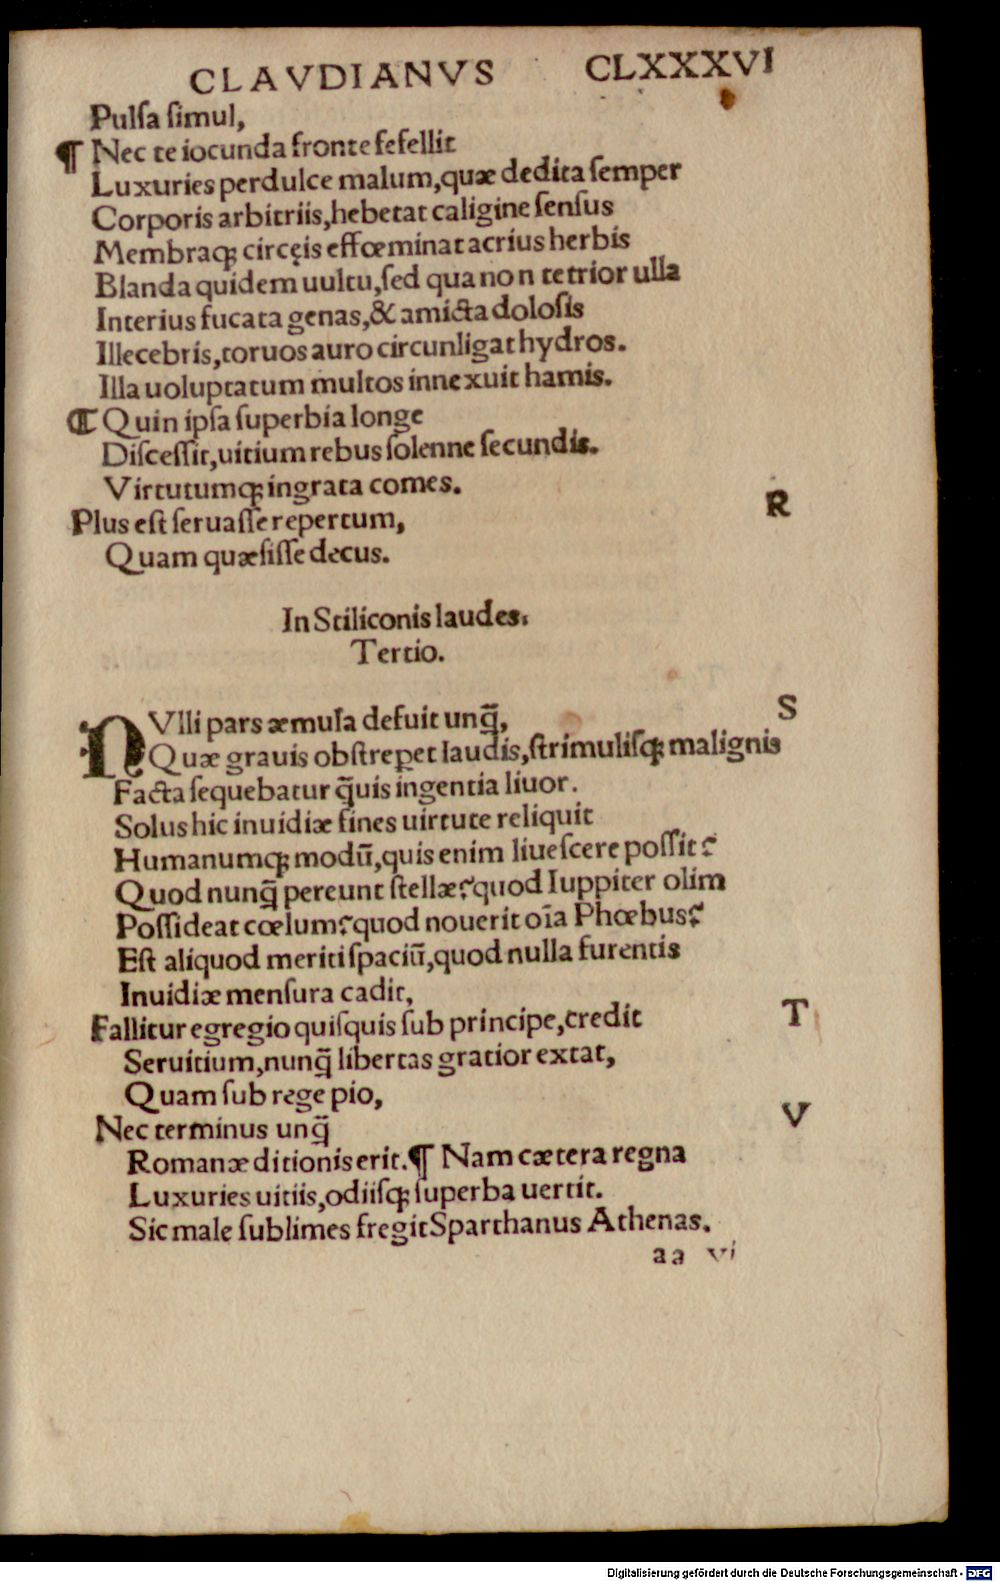 CLAVDIANVS CLXXXVI
Pulſa ſimul,
¶ Nec te iocunda fronte fefellit
Luxuries perdulce malum,quæ dedita ſemper
Corporis arbitriis,hebetat caligine ſenſus
Membraqꝫ circęis effœminat acrius herbis
Blanda quidem uultu,ſed qua non tetrior ulla
Interius fucata genas,& amicta doloſis
Illecebris,toruos auro circunligat hydros.
Illa uoluptatum multos innexuit hamis.
¶ Quin ipſa ſuperbia longe
Diſceſſit,uitium rebus ſolenne ſecundis.
Virtutumqꝫ ingrata comes.
R
Plus eſt ſeruaſſe repertum,
Quam quæſiſſe decus.
In Stiliconis laudes.
Tertio.
S
NVlli pars æmula defuit unq̃,
Quæ grauis obſtreꝑet laudis,ſtrimuliſqꝫ malignis
Facta ſequebatur q̃uis ingentia liuor.
Solus hic inuidiæ fines uirtute reliquit
Humanumqꝫ modũ,quis enim liueſcere poſſit?
Quod nunq̃ pereunt ſtellæ?quod Iuppiter olim
Poſſideat cœlum?quod nouerit oĩa Phœbus?
Eſt aliquod meriti ſpaciũ,quod nulla furentis
Inuidiæ menſura cadit,
T
Fallitur egregio quiſquis ſub principe,credit
Seruitium,nunq̃ libertas gratior extat,
Quam ſub rege pio,
V
Nec terminus unq̃
Romanæ ditionis erit.¶ Nam cætera regna
Luxuries uitiis,odiiſqꝫ ſuperba uertit.
Sic male ſublimes fregit Sparthanus Athenas.
aa vi
Digitalisierung gefördert durch die Deutsche Forschungsgemeinschaft - DFG